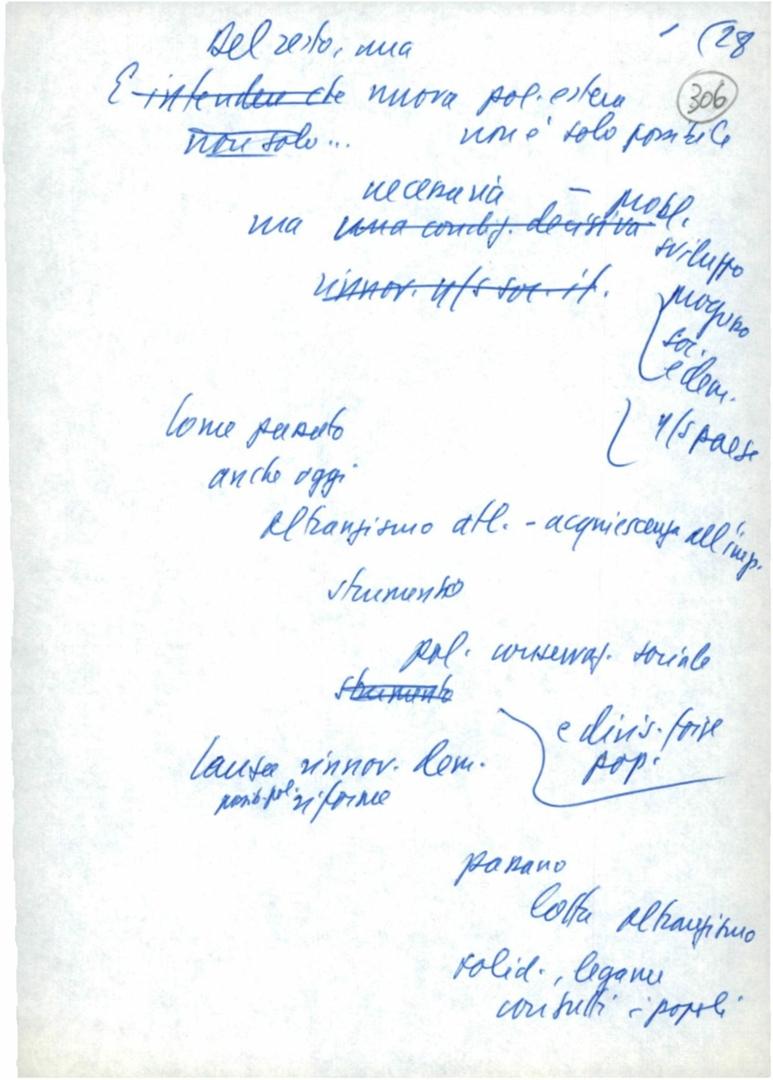 Del resto, una
(28
306
E intendere che nuova pol. estera
non solo... non è solo possibile
necessaria – probl.
ma una condiz. decisiva sviluppo
rinnov. n/s soc. it. progresso
soc.
e dem.
n/s paese
Come passato
anche oggi
oltranzismo atl. - acquiescenza all'imp.
strumento
pol. conservaz. sociale
strumento
e divis. forze
pop.
Causa rinnov. dem.
riforme
passano
lotta oltranzismo
solid., legame
con tutti i popoli